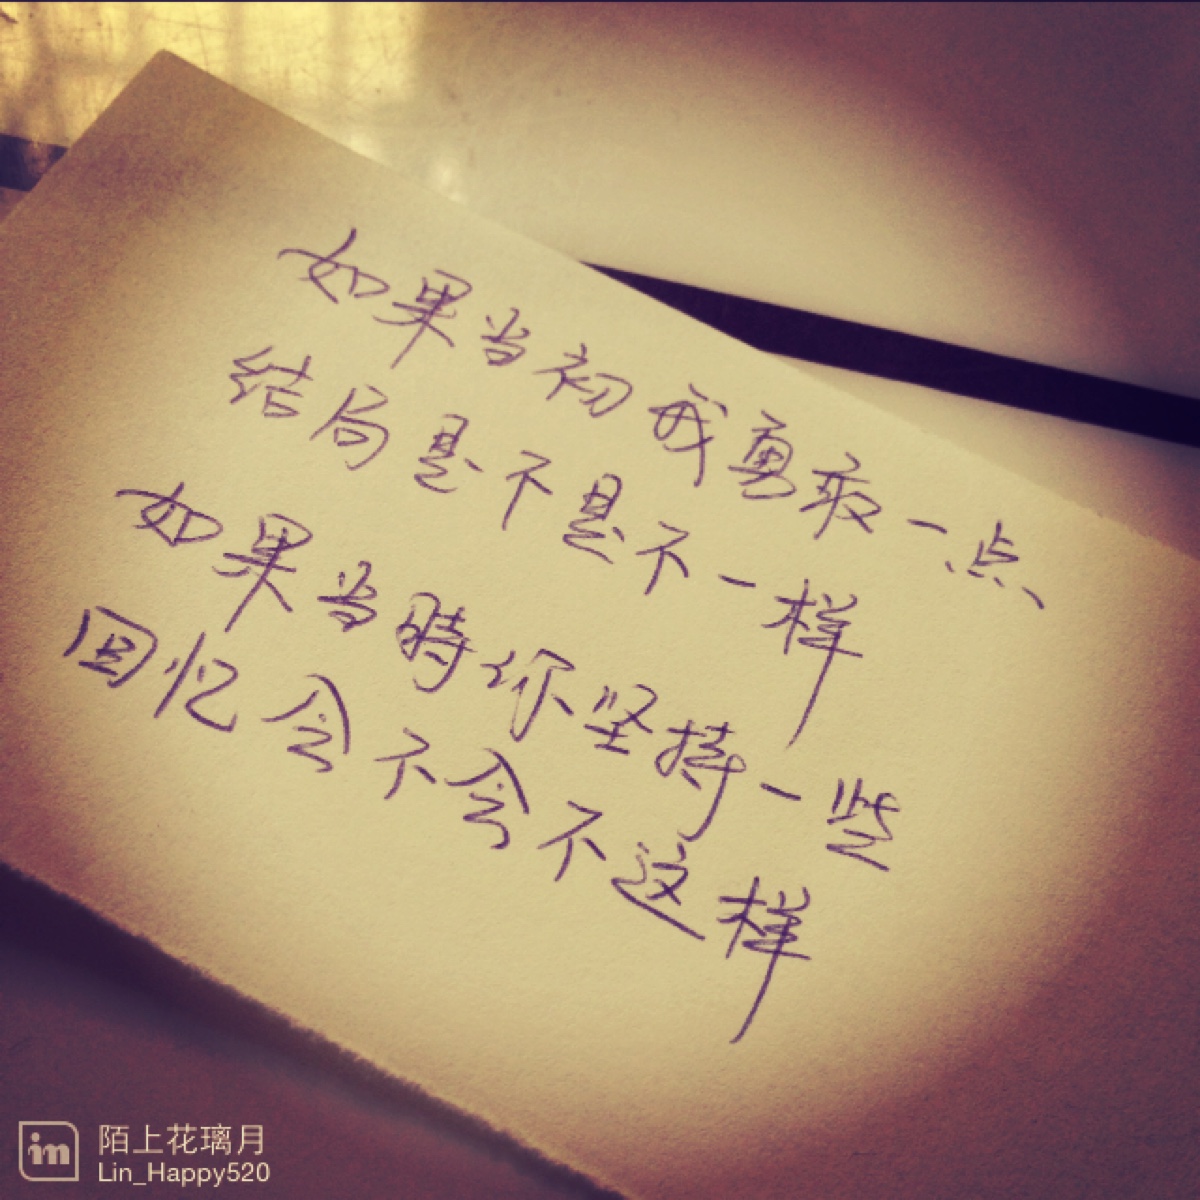 如果当初我勇敢一点、
结局是不是不一样
如果当時你坚持一些
回忆会不会不这样
im
陌上花璃月
Lin_Happy520